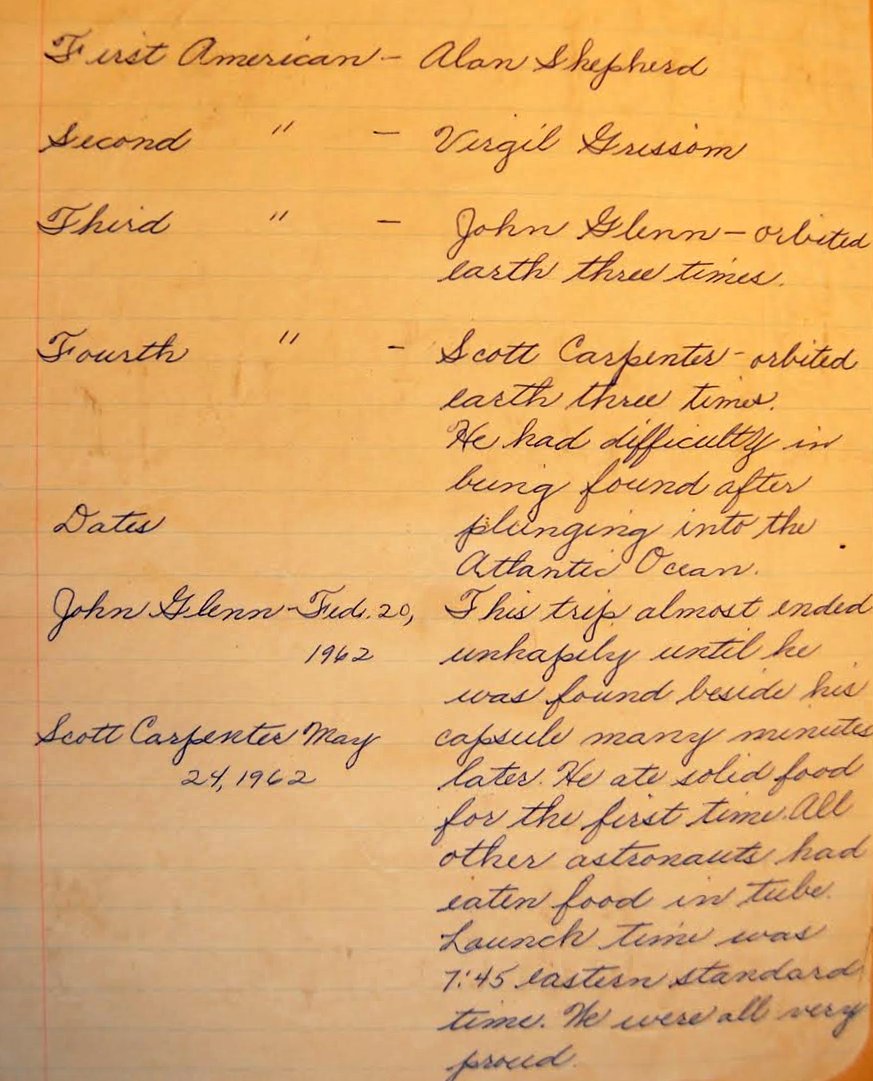 First American - Alan Shepherd
Second " - Virgil Grissom
Third " - John Glenn - orbited
earth three times.
Fourth " - Scott Carpenter - orbited
earth three times.
He had difficulty in
being found after
Dates
plunging into the
Atlantic Ocean.
John Glenn - Feb. 20,
1962
This trip almost ended
unhapily until he
was found beside his
Scott Carpenter May
24, 1962
capsule many minutes
later. He ate solid food
for the first time. All
other astronauts had
eaten food in tube.
Launch time was
7:45 eastern standard
time. We were all very
proud.